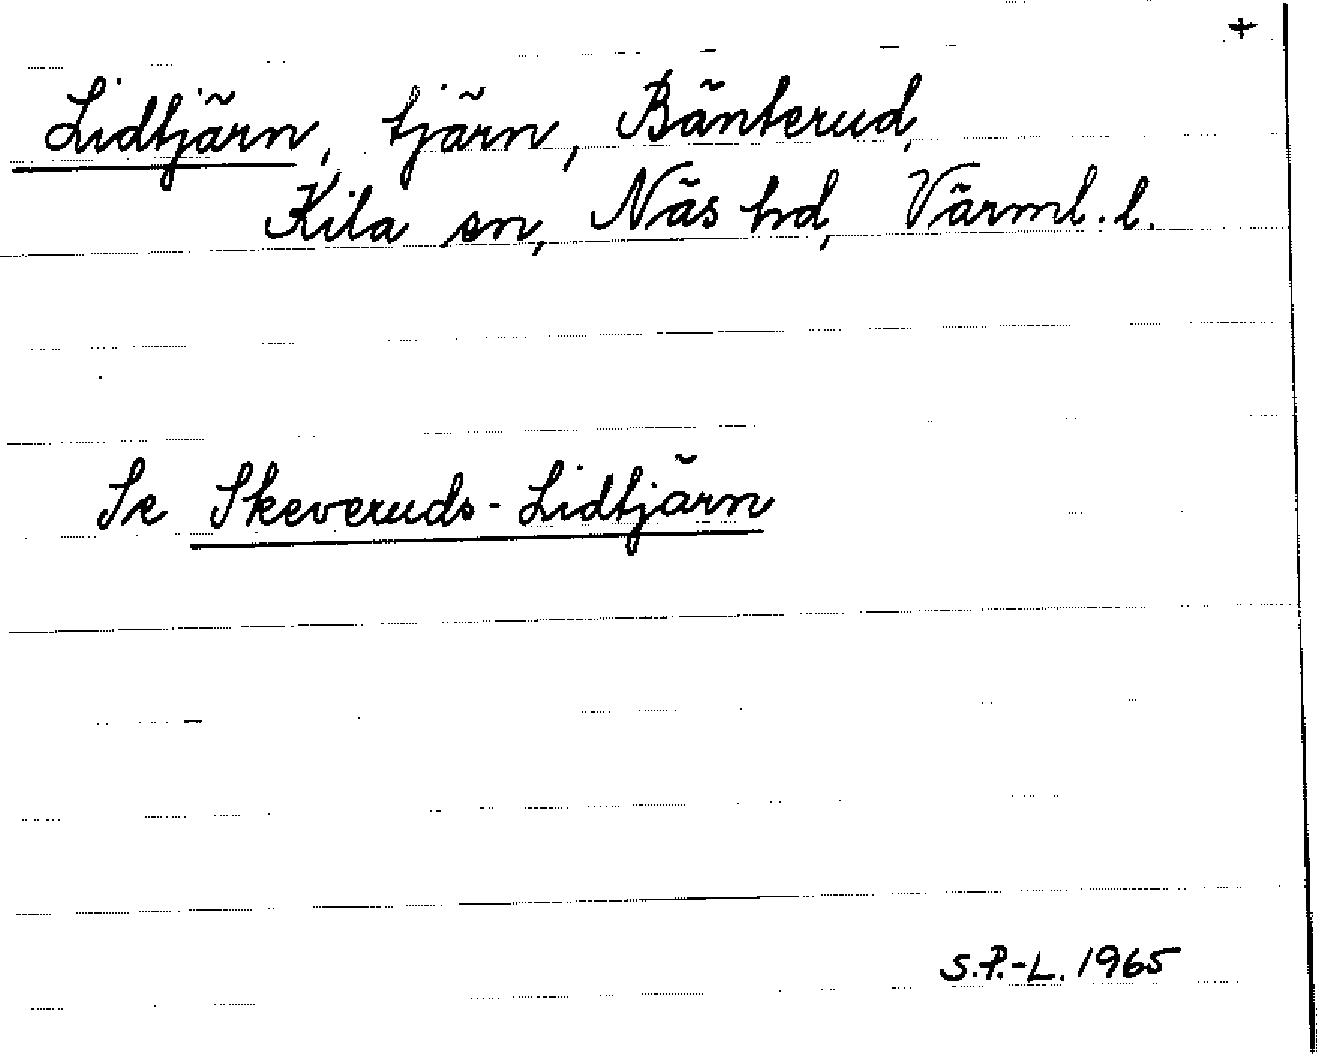 +
Lidtjärn, tjärn, Bänterud,
Kila sn, Näs hd, Värml. l.
Se Skeveruds-Lidtjärn
S.P.-L. 1965